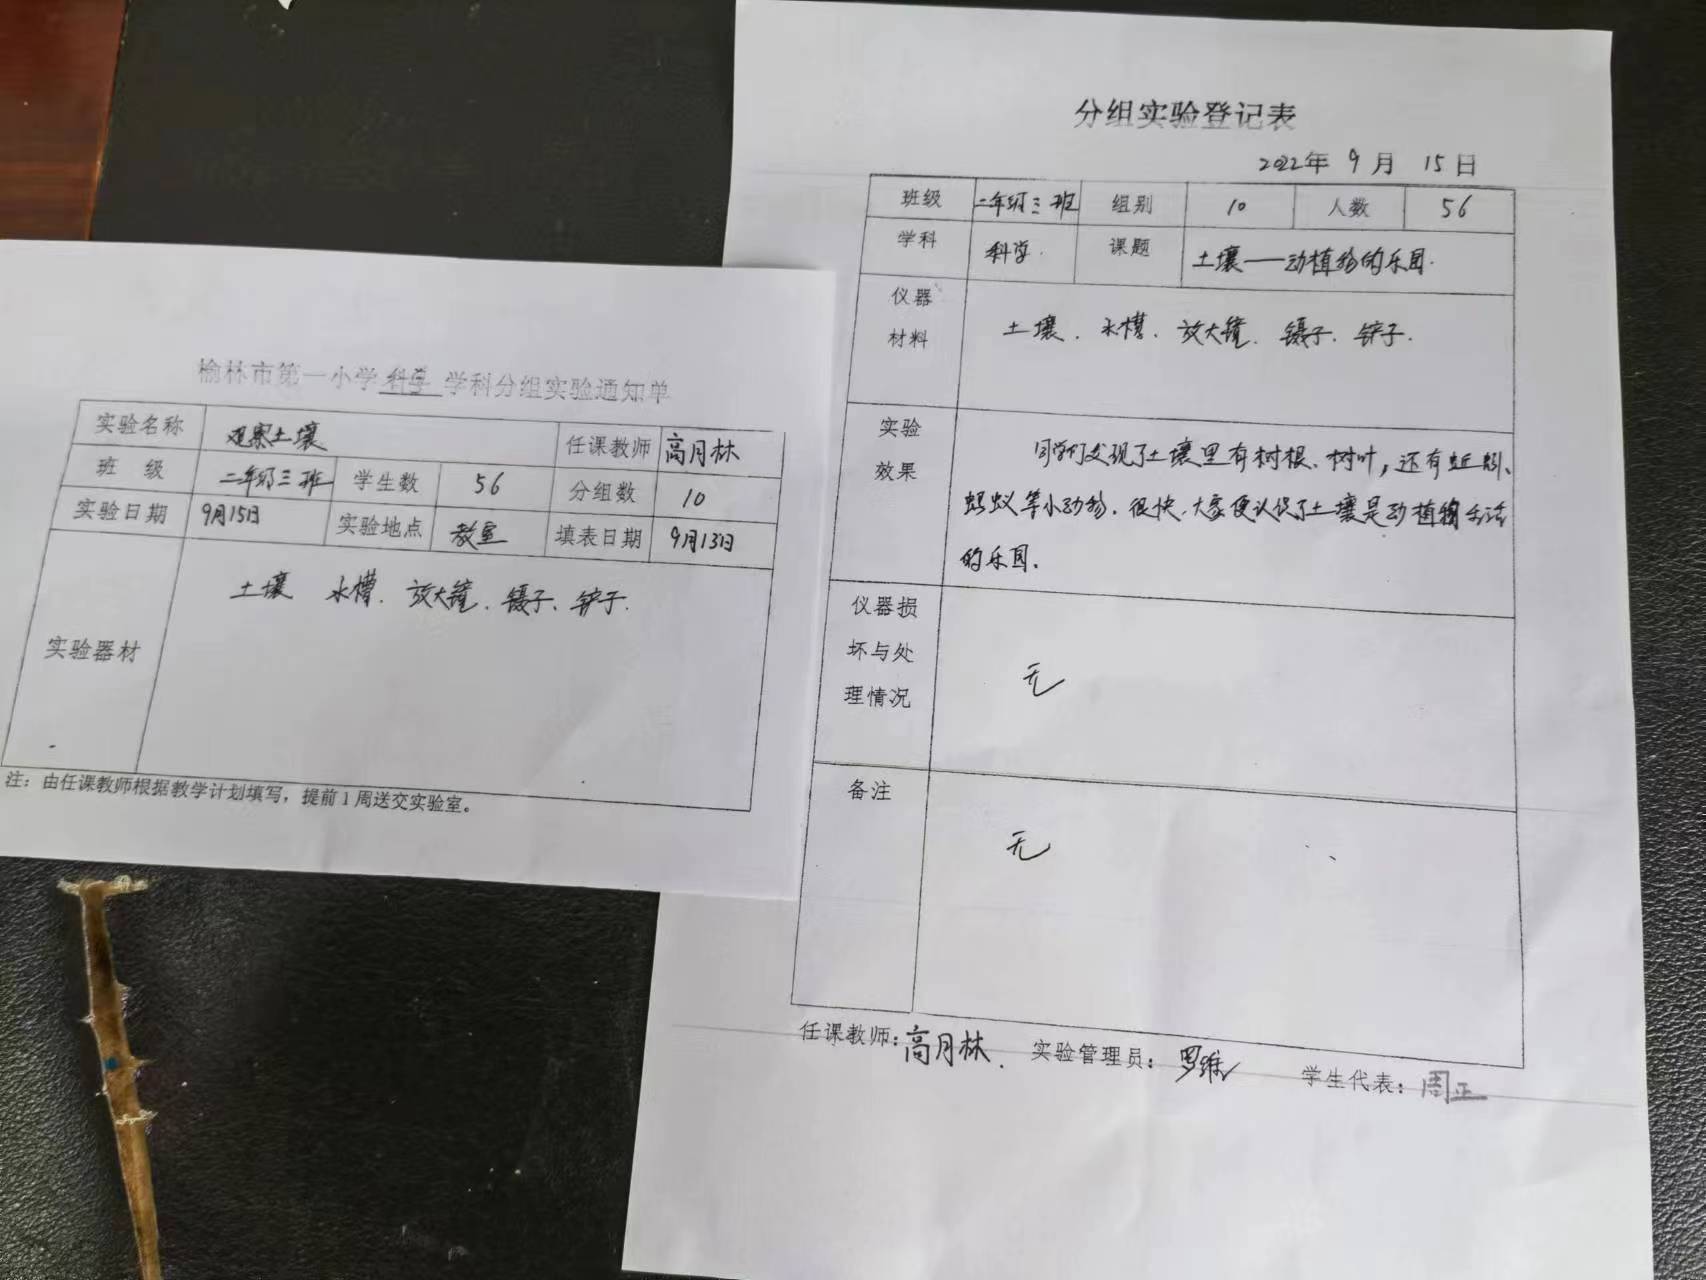 榆林市第一小学 科学 学科分组实验通知单
实验名称 观察土壤 任课教师 高月林
班 级 二年级三班 学生数 56 分组数 10
实验日期 9月15日 实验地点 教室 填表日期 9月13日
实验器材 土壤 水槽、放大镜、镊子、铲子.
注：由任课教师根据教学计划填写，提前1周送交实验室。
分组实验登记表
2022年 9月 15日
班级 二年级三班 组别 10 人数 56
学科 科学. 课题 土壤——动植物的乐园.
仪器
材料
土壤、水槽、放大镜、镊子、铲子.
实验
效果
同学们发现了土壤里有树根、树叶，还有蚯蚓、
蚂蚁等小动物。很快，大家便认识了土壤是动植物生活
的乐园.
仪器损
坏与处
理情况
无
备注
无
任课教师：高月林. 实验管理员：罗维 学生代表：周正